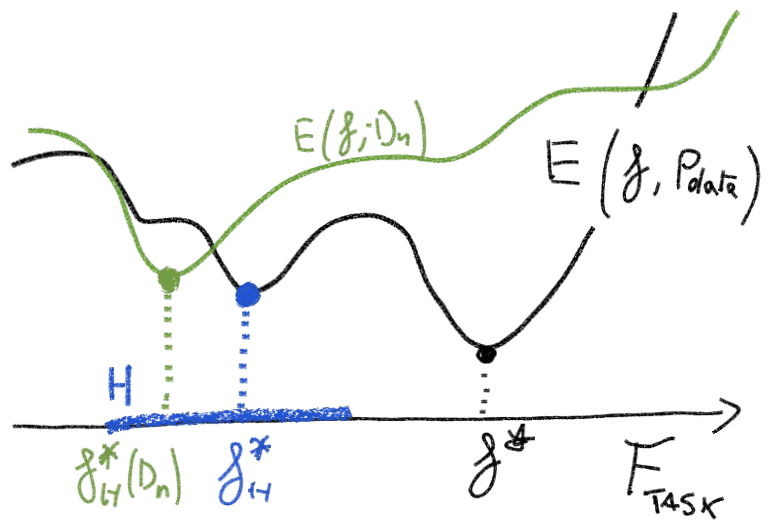 E(f; Dn)
E(f, Pdata)
H
f*H(Dn)
f*H
f*
FTASK